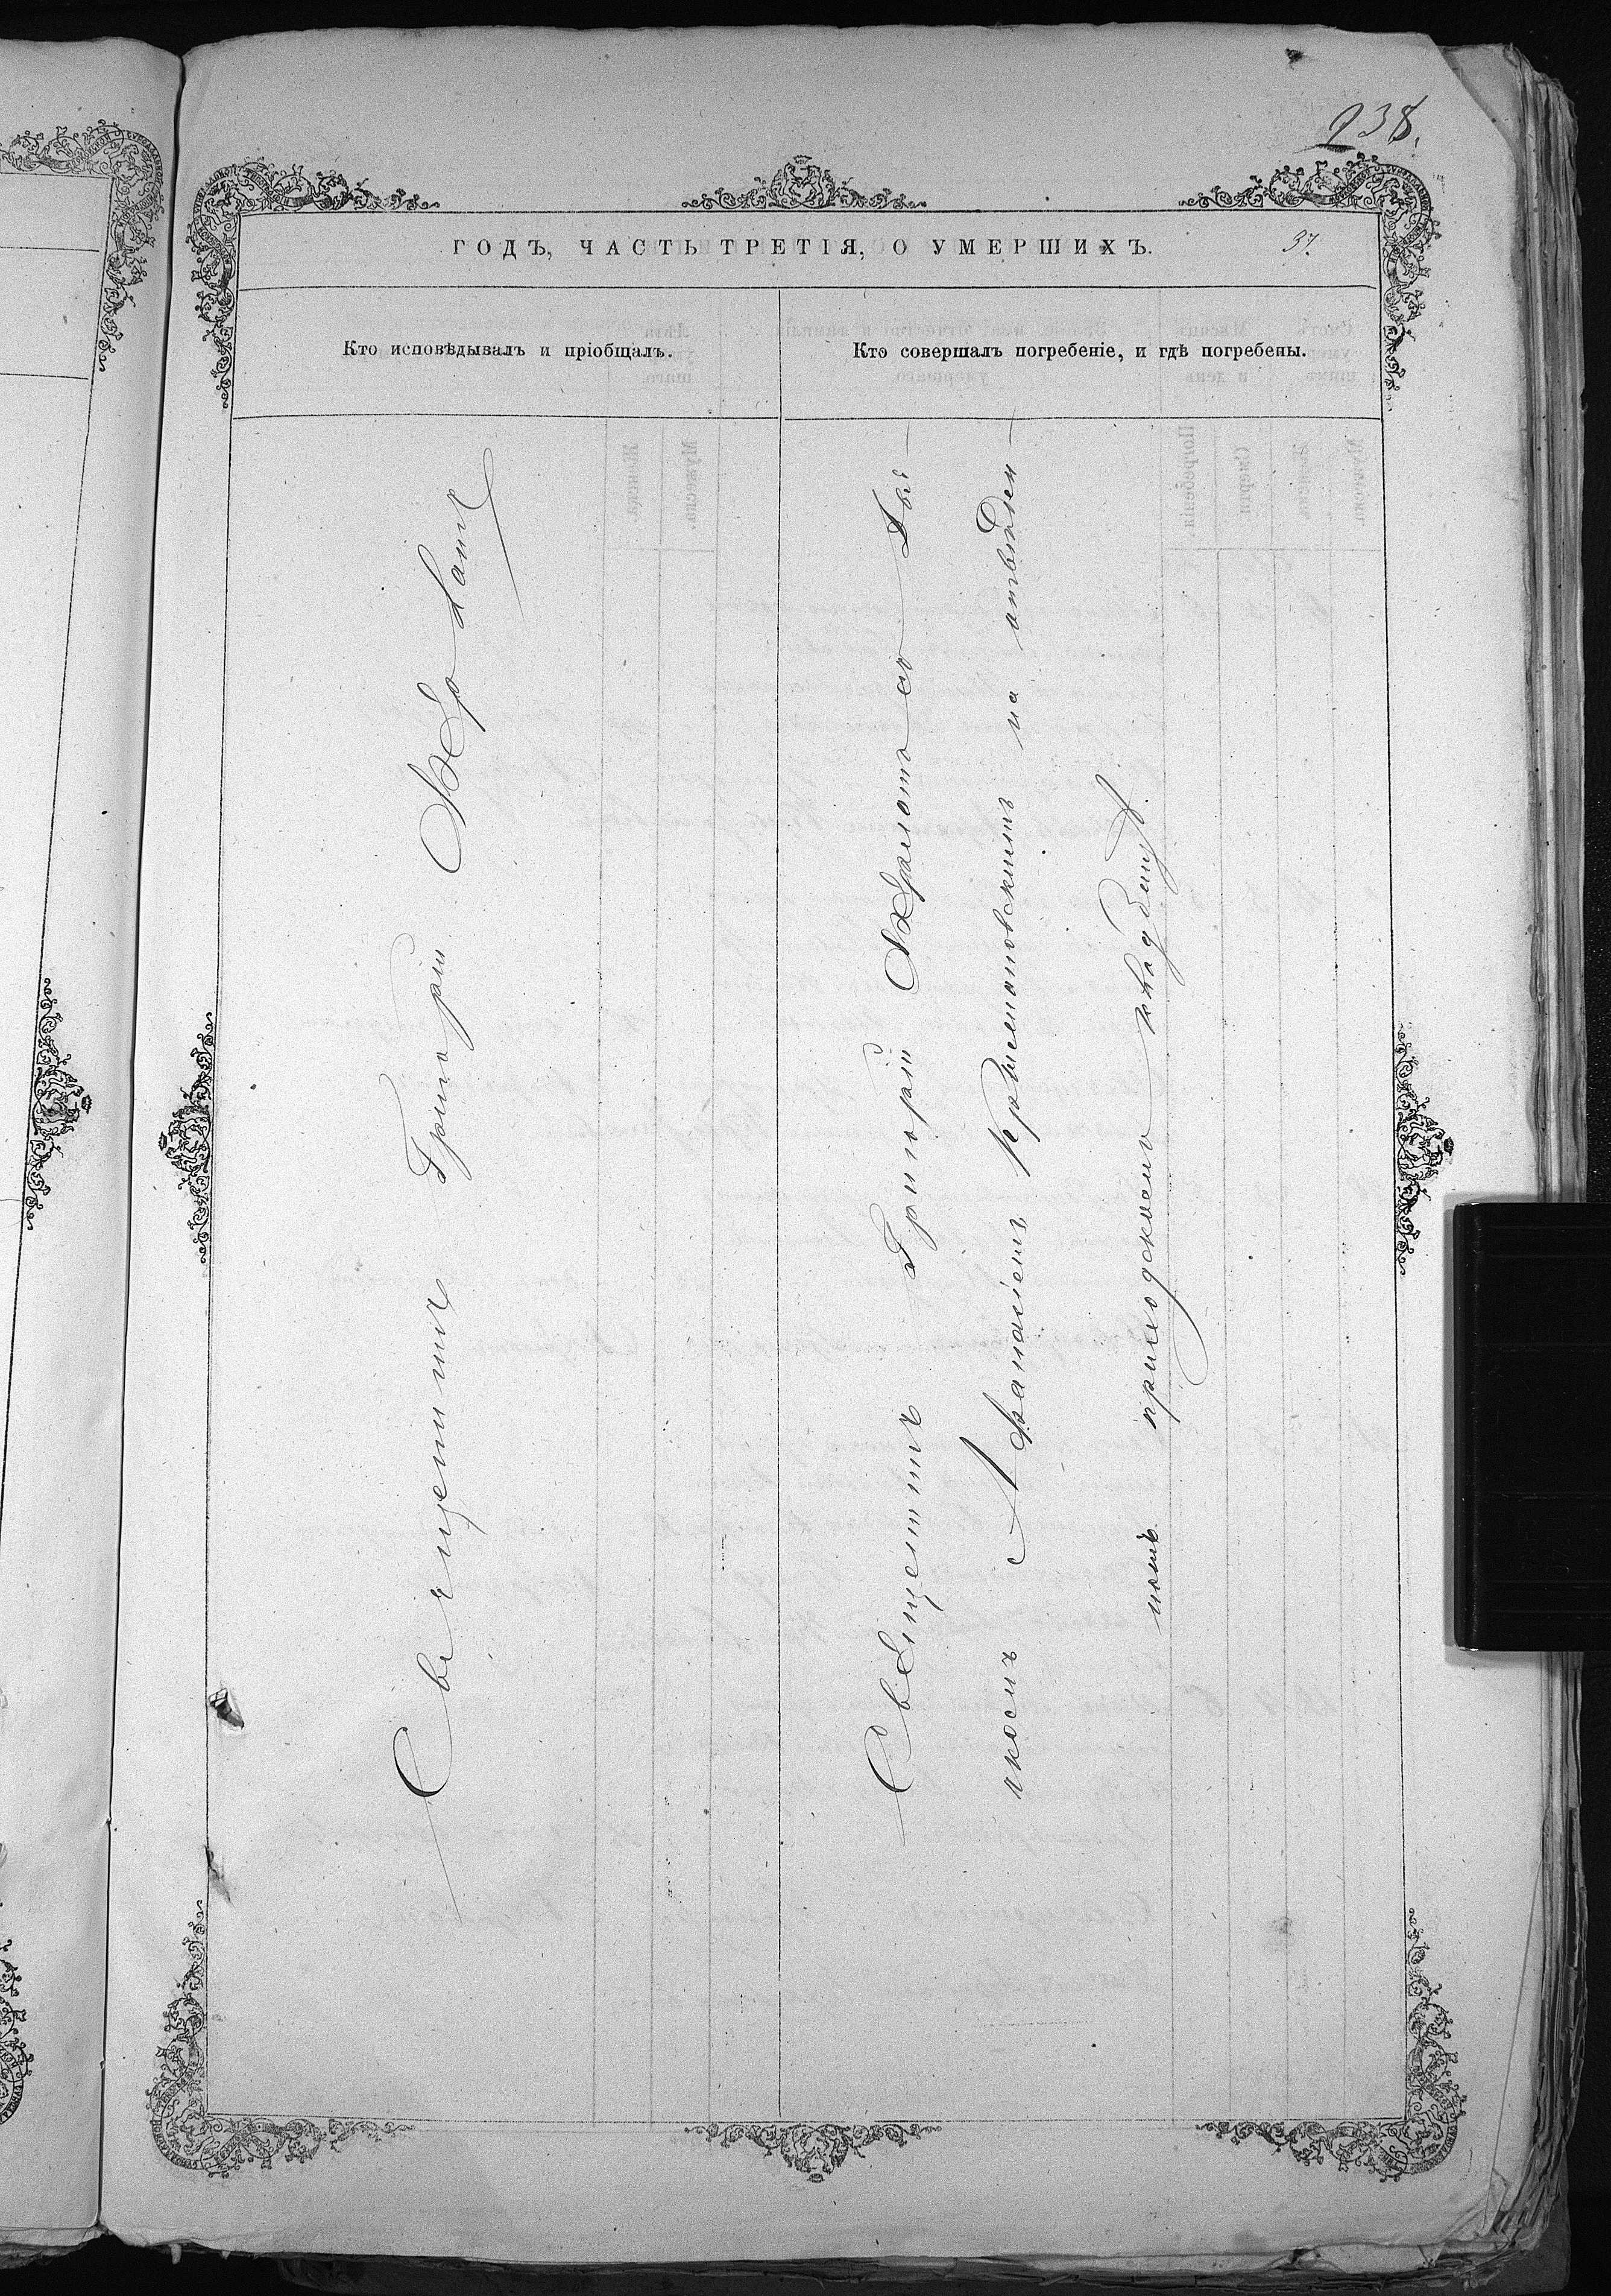 238.
ГОДЪ, ЧАСТЬ ТРЕТІЯ, О УМЕРШИХЪ.
37.
Кто исповѣдывалъ и пріобщалъ.
Кто совершалъ погребеніе, и гдѣ погребены.
Священникъ Григорій
Священникъ Григорій со Дья-
чкомъ Аѳанасіемъ на отведен-
номъ приходскомъ кладбищѣ.